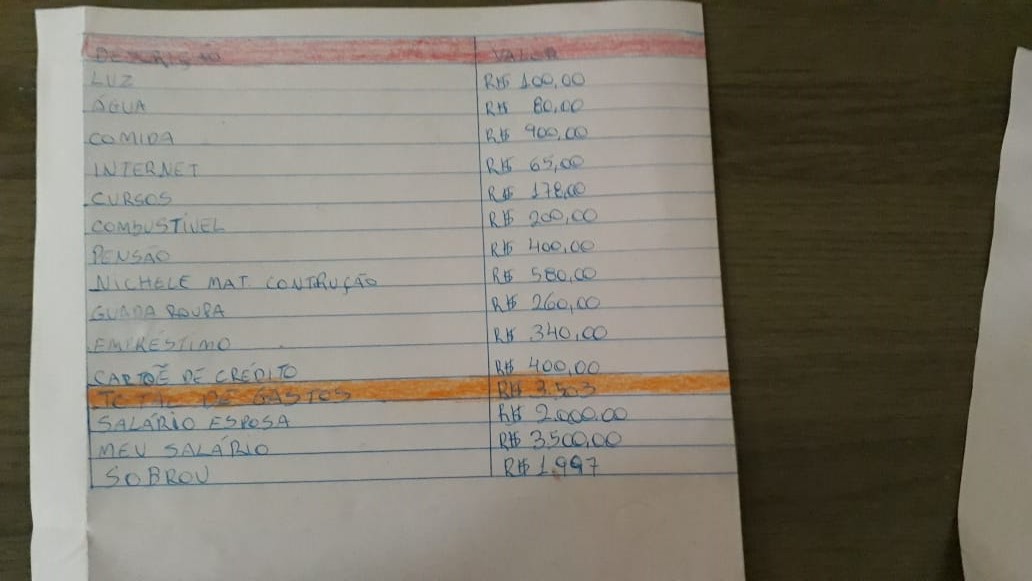 DESCRIÇÃO VALOR
LUZ R$ 100,00
ÁGUA R$ 80,00
COMIDA R$ 900,00
INTERNET R$ 65,00
CURSOS R$ 178,00
COMBUSTÍVEL R$ 200,00
PENSÃO R$ 400,00
NICHELE MAT CONTRUÇÃO R$ 580,00
GUADA ROUPA R$ 260,00
EMPRÉSTIMO R$ 340,00
CARTOẼ DE CRÉDITO R$ 400,00
TOTAL DE GASTOS R$ 3.503
SALÁRIO ESPOSA R$ 2.000,00
MEU SALÁRIO R$ 3.500,00
SOBROU R$ 1.997